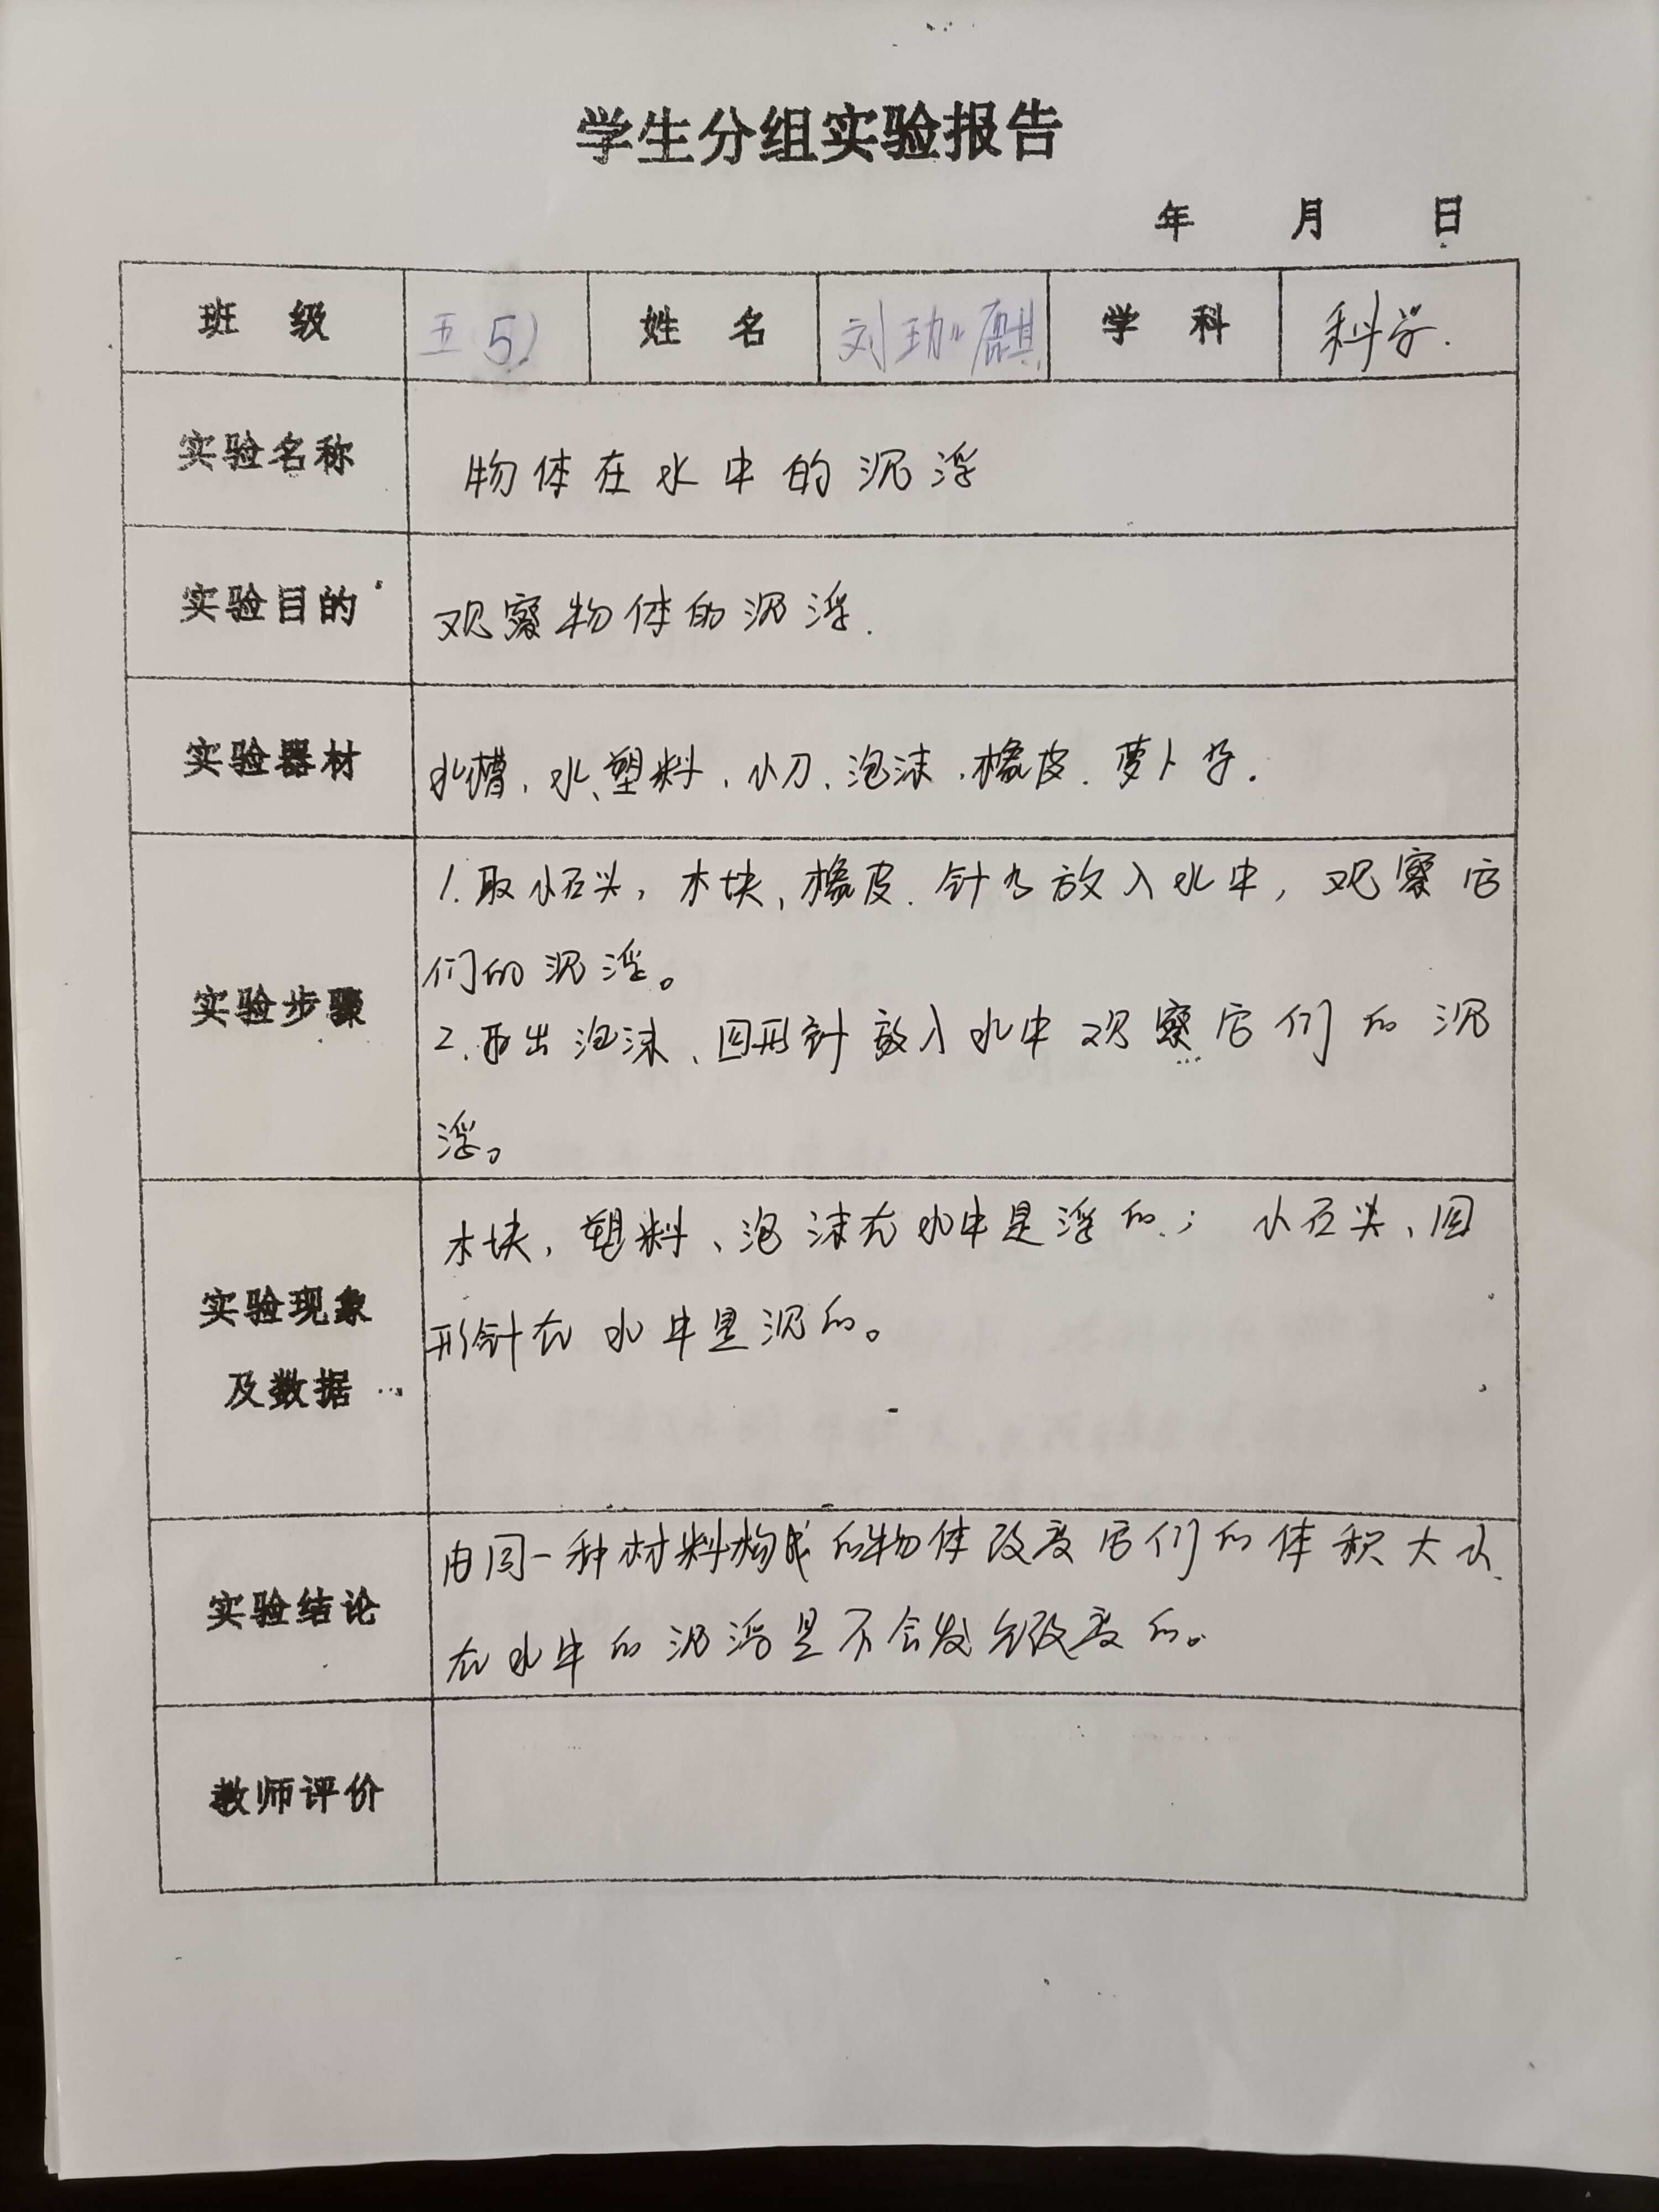 学生分组实验报告
年 月 日
班 级 五(5) 姓 名 刘珈麒 学 科 科学.
实验名称 物体在水中的沉浮
实验目的 观察物体的沉浮.
实验器材 水槽、水、塑料、小刀、泡沫、橡皮、萝卜等.
实验步骤
1.取小石头,木块、橡皮、针为放入水中,观察它
们的沉浮。
2.再出泡沫、回形针放入水中观察它们的沉
浮。
实验现象
及数据
木块、塑料、泡沫在水中是浮的;小石头、回
形针在水中是沉的。
实验结论
由同一种材料构成的物体改变它们的体积大小
在水中的沉浮是不会发生改变的。
教师评价